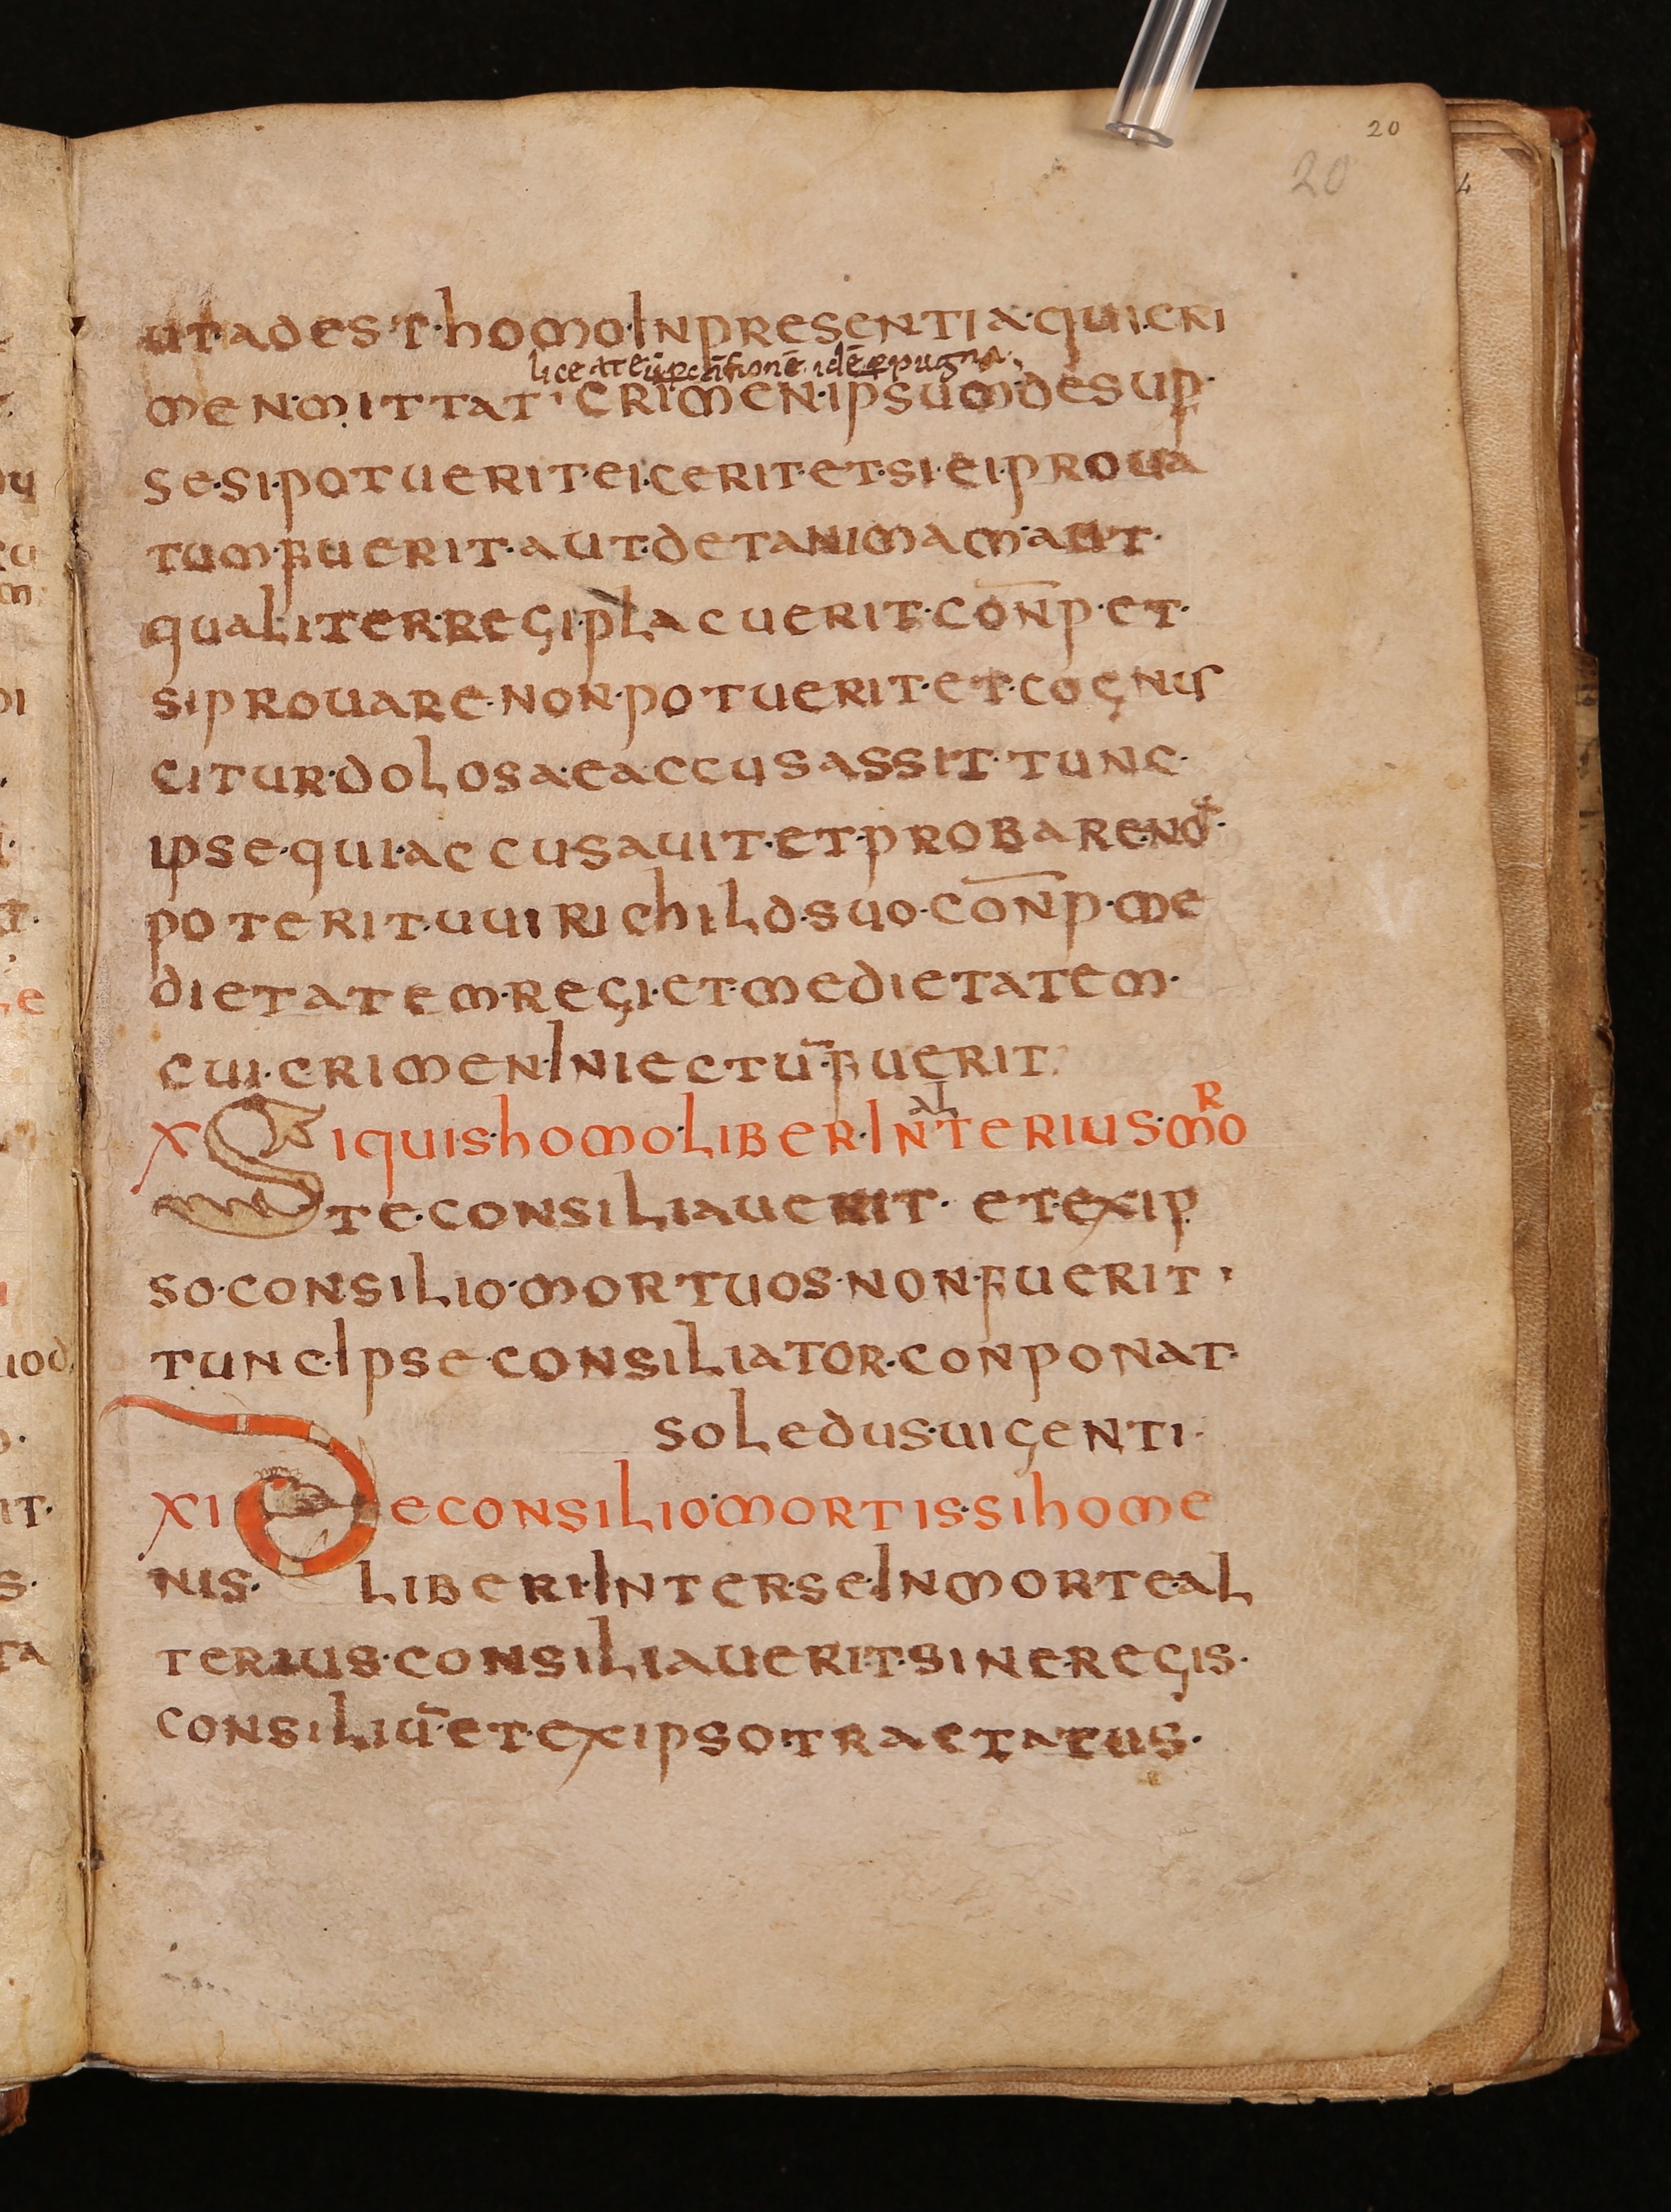 20
20
ut·adest·homo·Inpresentia·qui·cri
liceat eū per cāfionē idē per pugnā
men·mittat· crimen·ipsum·desup·
se·si·potuerit·eicerit·et·si·ei·proua
tum·fuerit·aut·det·animam·aut·
qualiter·regi·placuerit·con̄p·et·
si·prouare·non·potuerit·et·cognus
citur·dolosae·accusassit·tunc·
ipse·qui·accusauit·et·probare·nō·
poterit·uuirichild·suo·con̄p·me
dietatem·regi·et·medietatem·
cui·crimen·Iniectū·fuerit·
X Si quis·homo·liber·In alterius·mor
te·consiliauerit· et·ex ip
so·consilio·mortuos·non·fuerit·
tunc·Ipse·consiliator·conponat·
soledus·uigenti·
XI De consilio·mortis·si home
nis· liberi·Inter·se·In morte·al
terius·consiliauerit·sine·regis·
consiliū·et·ex ipso·tractatus·